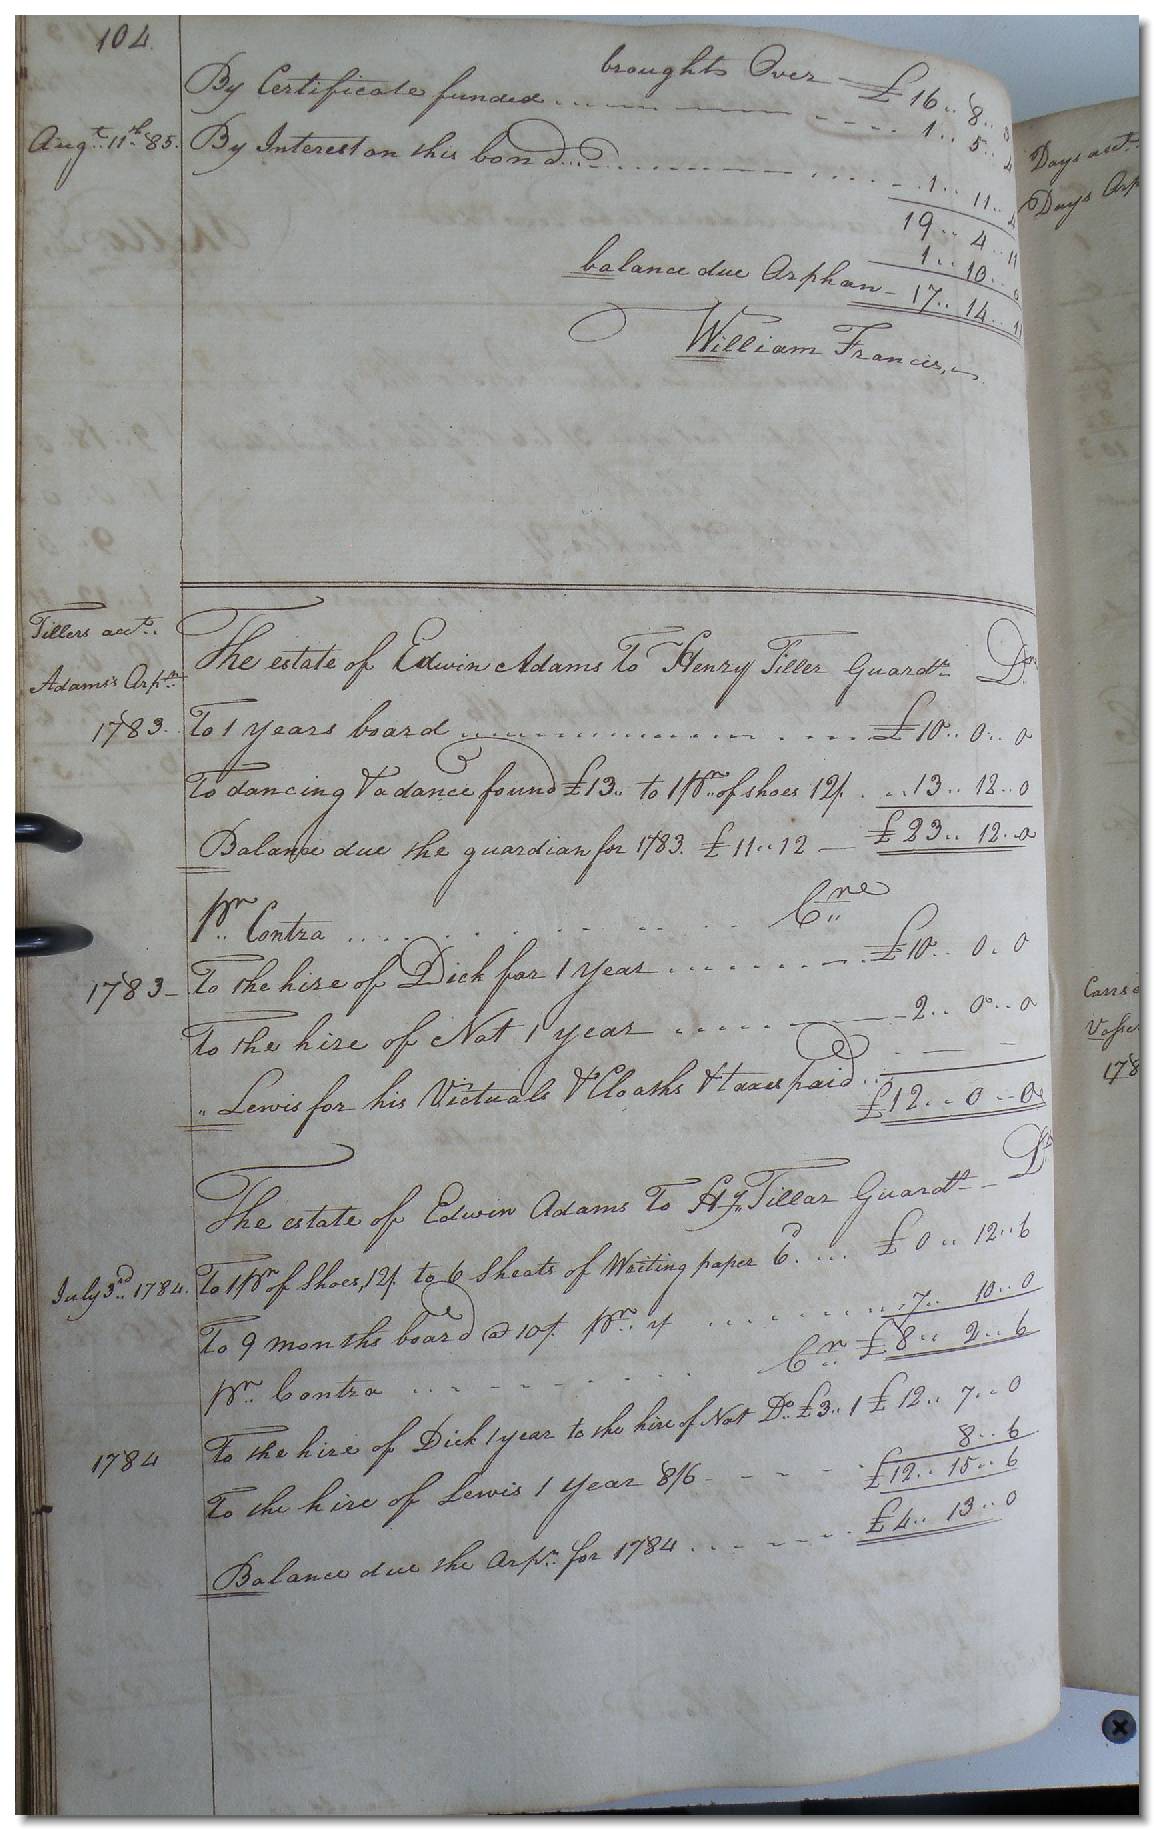 104
broughts Over — £16.. 8..
By Certificate funded ........ 1.. 5.. 4
Augt. 11th 85. By Interest on this bond .......... 1.. 11.. 4
19.. 4.. 11
1.. 10..
balance due Orphan — 17.. 14.. 11
William Francis
Tillers acct.. The estate of Edwin Adams To Henry Tiller Guardn Dr.
Adams's Orpn
1783. To 1 years board .......... £10.. 0.. 0
To dancing & a dance found £13.. to 1 pr.. of shoes 12/. .. 13.. 12.. 0
Balance due the guardian for 1783. £11..12 — £23.. 12..0
Pr.. Contra .......... Cre
1783 — To the hire of Dick for 1 year ....... £10.. 0.. 0
To the hire of Nat 1 year ....... 2.. 0.. 0
" Lewis for his Victuals & Cloaths & taxes paid .. — —
£12.. 0.. 0
The estate of Edwin Adams To Hy.. Tillar Guardn — Dr
July 3rd.. 1784. To 1 Pr of Shoes, 12/. to 6 Sheats of Writing paper 6. ... £0.. 12..6
To 9 months board @ 10£. Pr.. y ........ 7.. 10..0
£8.. 2.. 6
Pr.. Contra ........ Cr..
1784 To the hire of Dick 1 year to the hire of Nat Do £3.. 1 £12.. 7.. 0
To the hire of Lewis 1 year 8/6 - - - - 8.. 6
£12.. 15.. 6
Balance due the Orpn.. for 1784 ....... £4.. 13.. 0
Days acct..
Days Orp
178